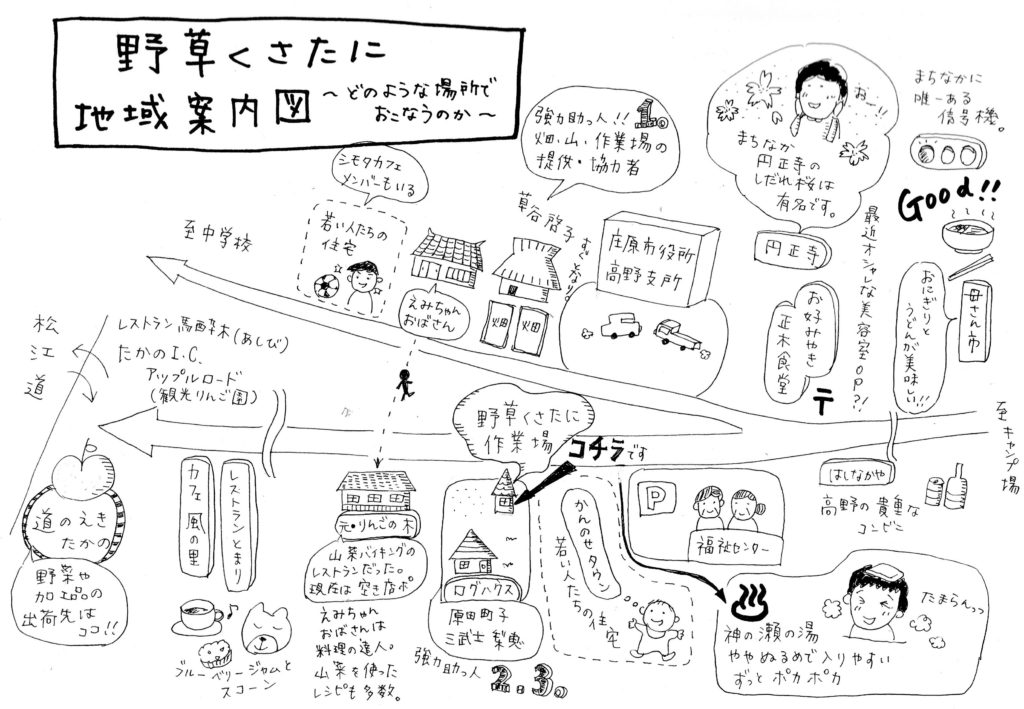 野草くさたに
地域案内図 〜どのような場所で
おこなうのか〜
シモタカフェ
メンバーもいる
若い人たちの
住宅
至中学校
強力助っ人!! 1。
畑、山、作業場の
提供・協力者
草谷啓子
すぐとなり。
えみちゃん
おばさん
畑 畑
庄原市役所
高野支所
お〜!!
まちなか
円正寺の
しだれ桜は
有名です。
円正寺
まちなかに
唯一ある
信号機。
Good!!
最近オシャレな美容室OP?!
お好みやき
正木食堂
〒
おにぎりと
うどんが美味しい!!
母さん市
至キャンプ場
松江道
レストラン馬酔木(あしび)
たかのI.C.
アップルロード
(観光りんご園)
道のえき
たかの
野菜や
加工品の
出荷先は
ココ!!
カフェ風の里
レストランとまり
ブルーベリージャムと
スコーン
元・りんごの木
山菜バイキングの
レストランだった。
現在は空き店ポ
えみちゃん
おばさんは
料理の達人。
山菜を使った
レシピも多数。
野草くさたに
作業場
コチラです
ログハウス
原田町子
三武士梨恵
強力助っ人
2.3。
かんのせタウン
若い人たちの住宅
P
福祉センター
はしなかや
高野の貴重な
コンビニ
たまらんっっ
神の瀬の湯
ややぬるめで入りやすい
ずっとポカポカ